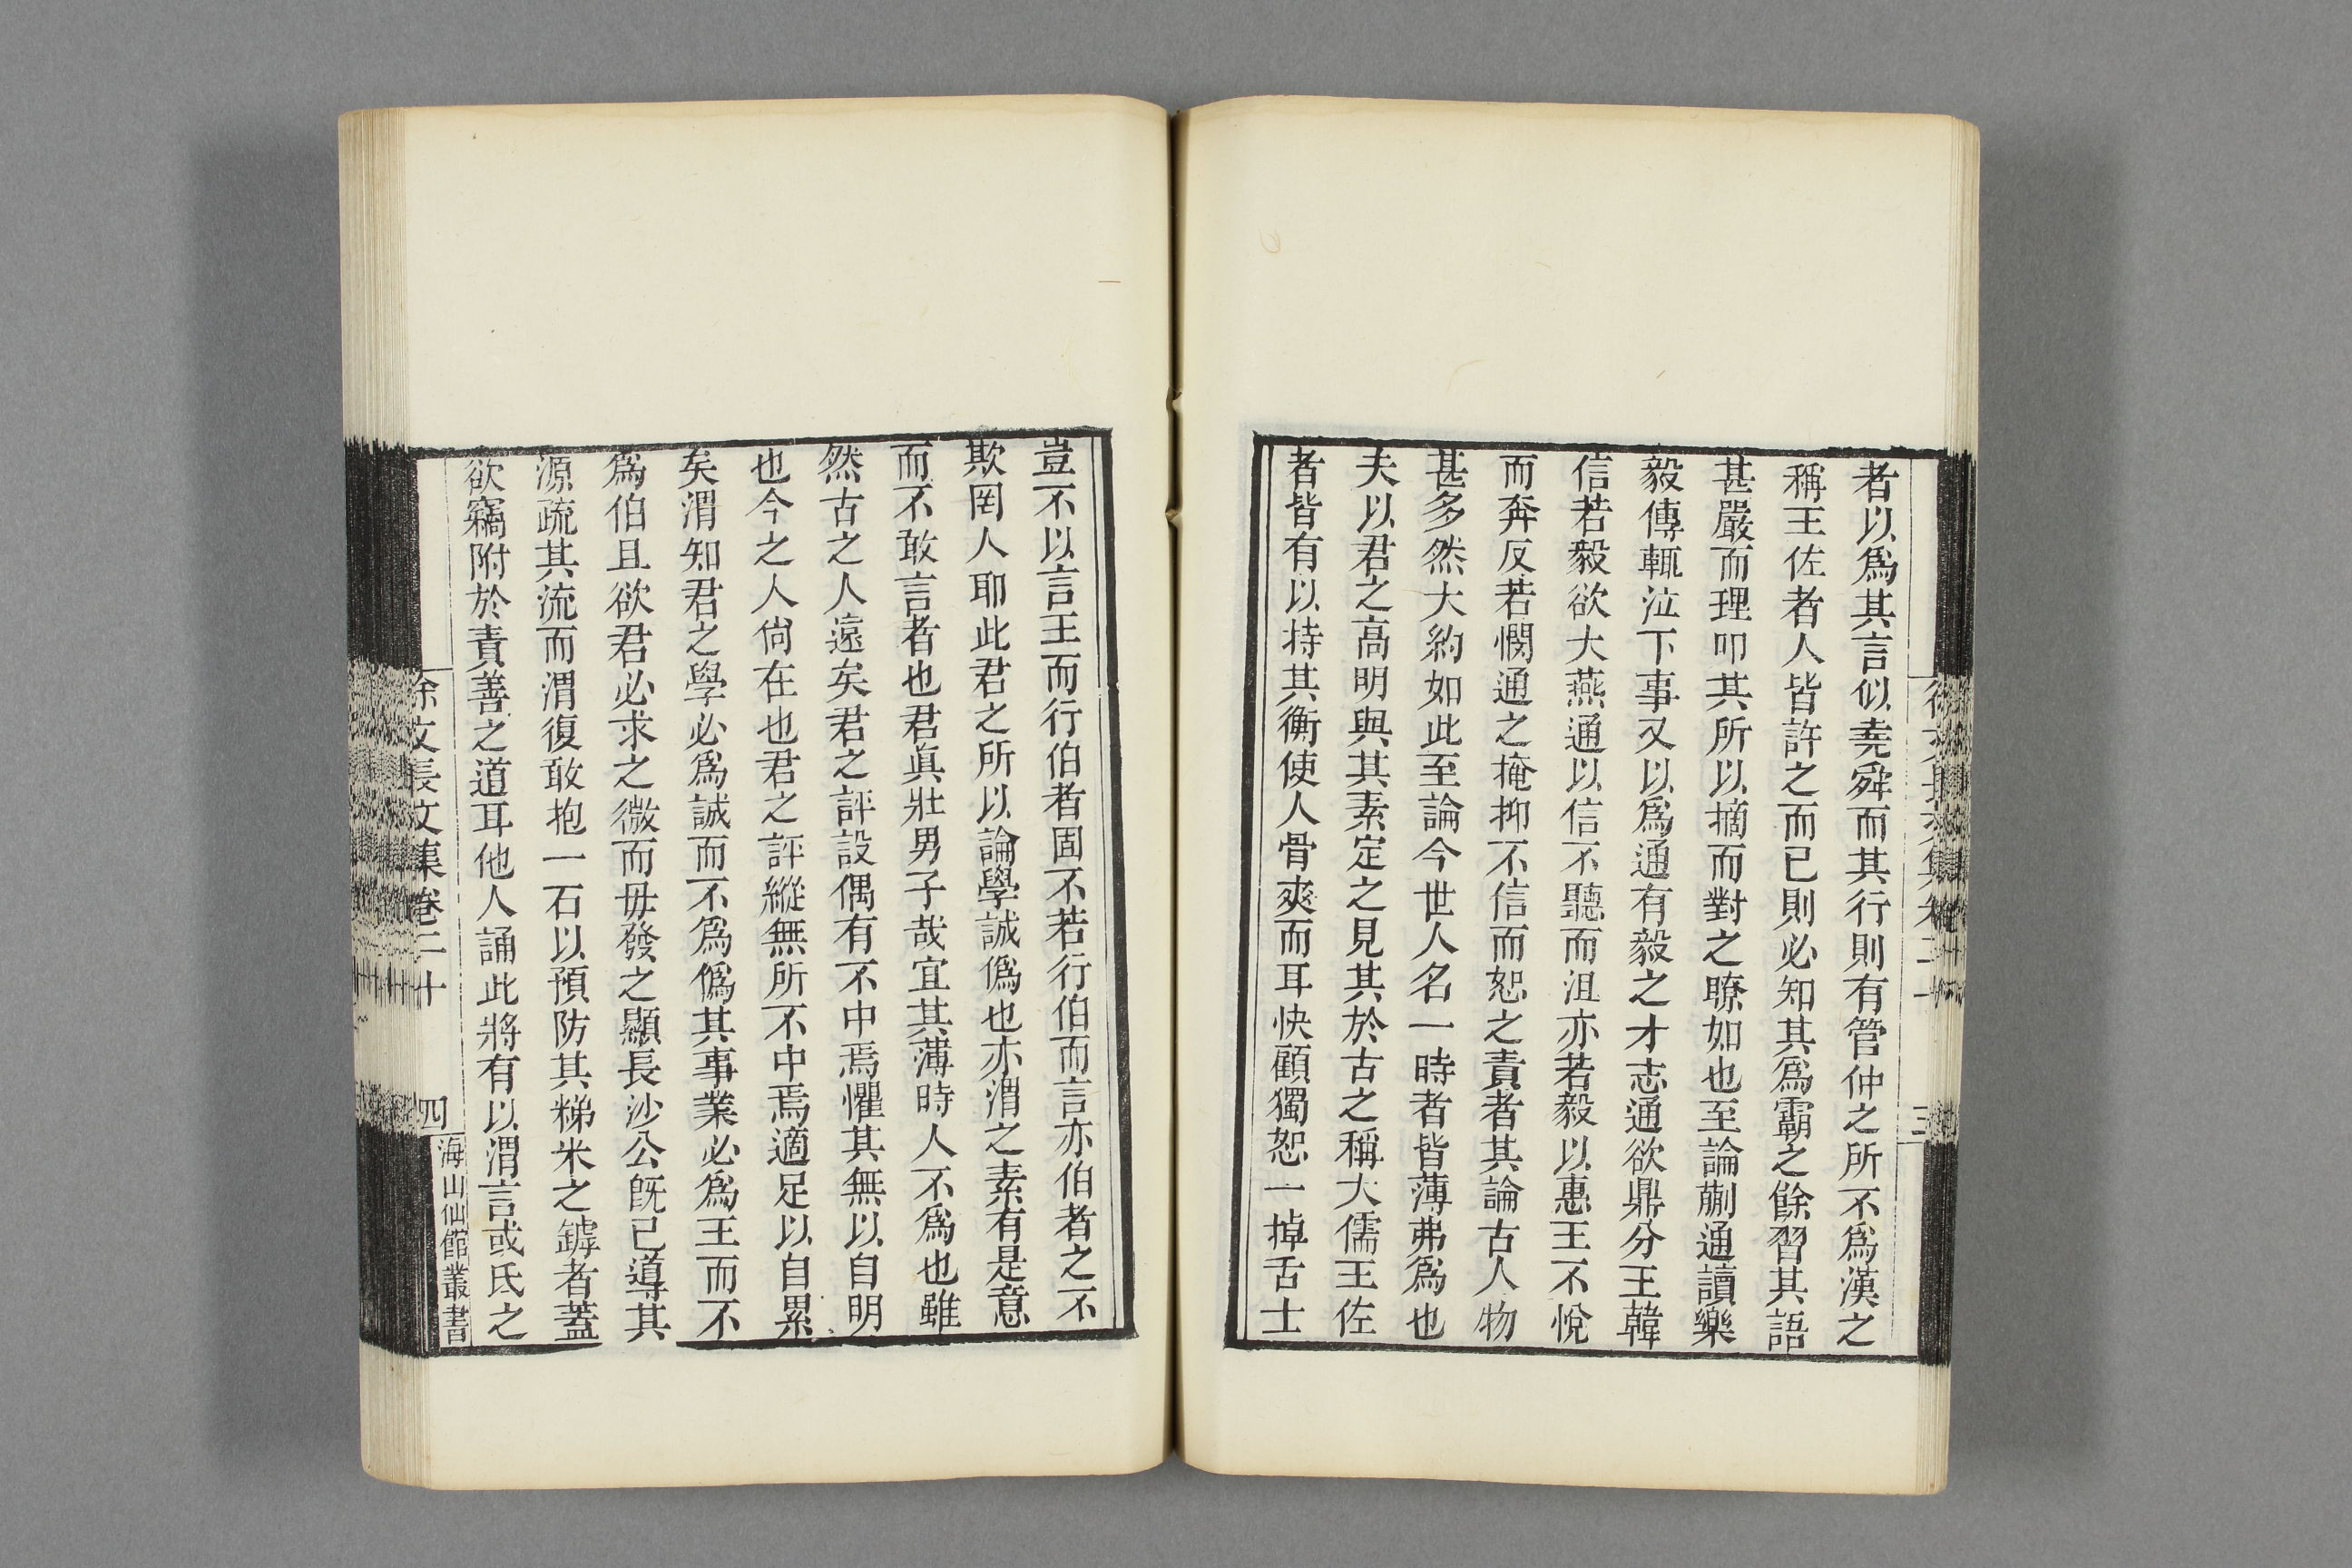 者以爲其言似堯舜而其行則有管仲之所不爲漢之
稱王佐者人皆許之而已則必知其爲霸之餘習其語
甚嚴而理叩其所以摘而對之瞭如也至論蒯通讀樂
毅傳輒泣下事又以爲通有毅之才志通欲鼎分王韓
信若毅欲大燕通以信不聽而沮亦若毅以惠王不悅
而奔反若憫通之掩抑不信而恕之責者其論古人物
甚多然大約如此至論今世人名一時者皆薄弗爲也
夫以君之高明與其素定之見其於古之稱大儒王佐
者皆有以持其衡使人骨爽而耳快顧獨恕一掉舌士
徐文長文集卷二十
三
豈不以言王而行伯者固不若行伯而言亦伯者之不
欺罔人耶此君之所以論學誠僞也亦渭之素有是意
而不敢言者也君眞壯男子哉宜其薄時人不爲也雖
然古之人遠矣君之評設偶有不中焉懼其無以自明
也今之人尙在也君之評縱無所不中焉適足以自累
矣渭知君之學必爲誠而不爲僞其事業必爲王而不
爲伯且欲君必求之微而毋發之顯長沙公旣已導其
源疏其流而渭復敢抱一石以預防其稊米之罅者蓋
欲竊附於責善之道耳他人誦此將有以渭言或氏之
徐文長文集卷二十
四
海山仙館叢書